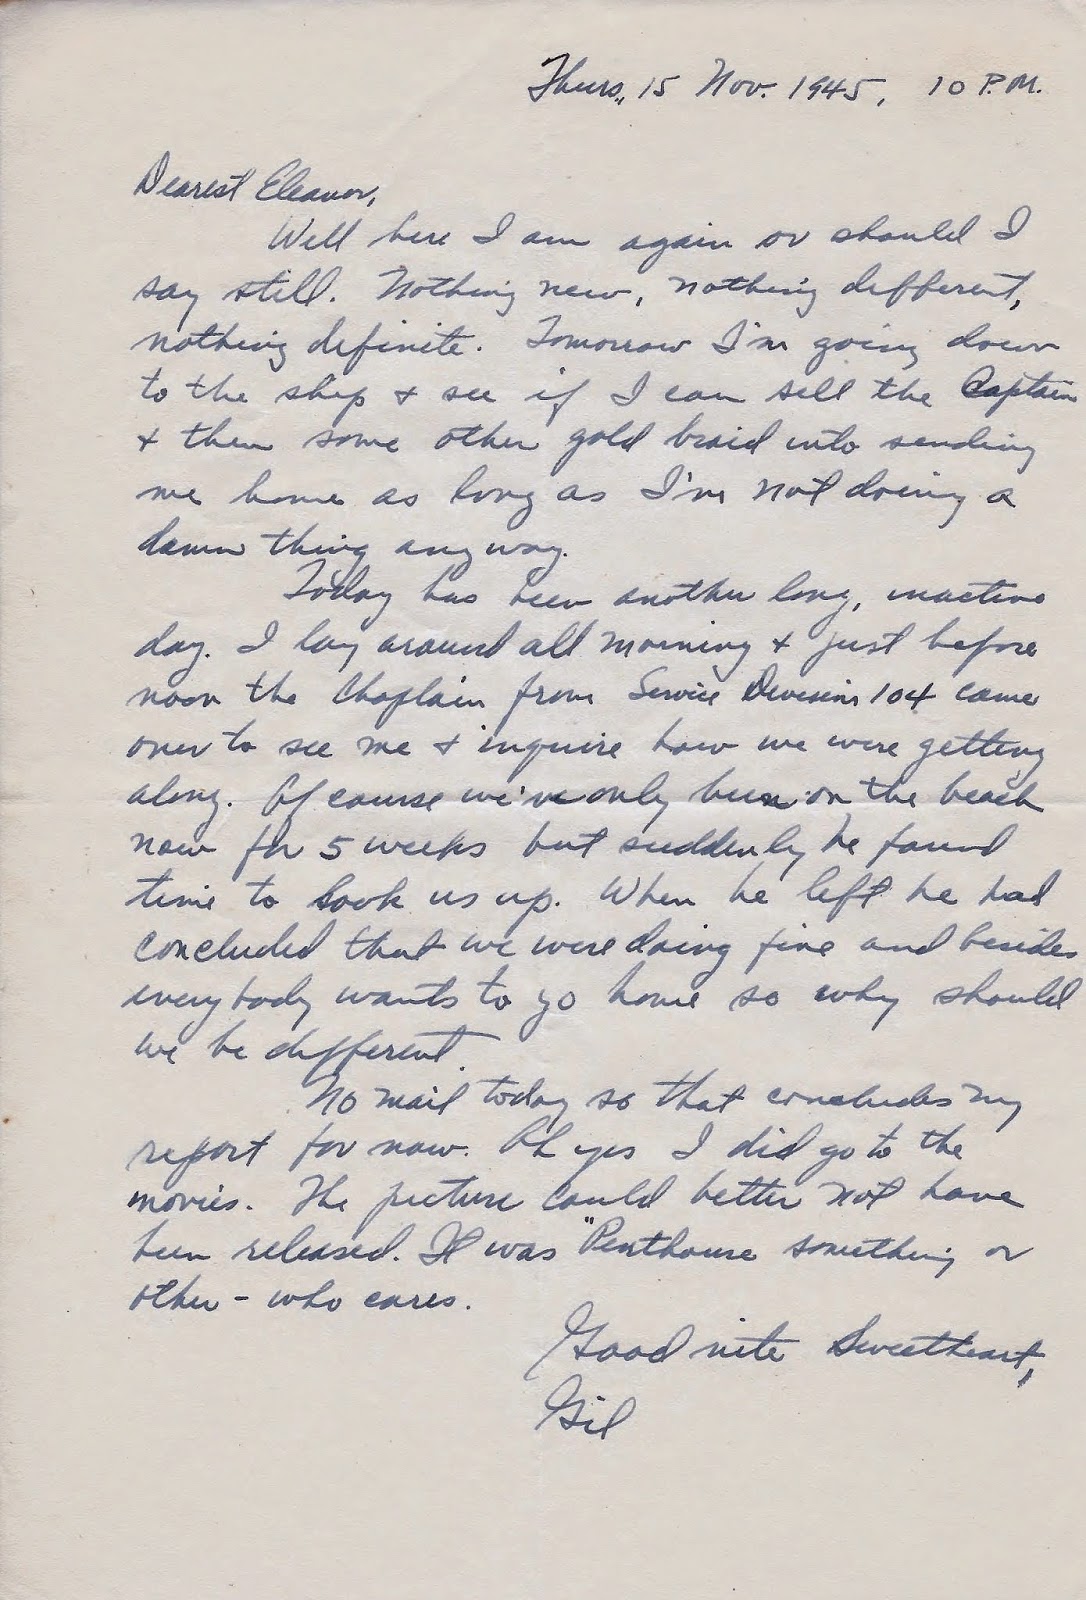 Thurs., 15 Nov. 1945, 10 P.M.
Dearest Eleanor,
Well here I am again or should I
say still. Nothing new, nothing different,
nothing definite. Tomorrow I'm going down
to the ship + see if I can sell the Captain
+ then some other gold braid into sending
me home as long as I'm not doing a
damn thing anyway.
Today has been another long, inactive
day. I lay around all morning + just before
noon the Chaplain from Service Division 104 came
over to see me + inquire how we were getting
along. Of course we've only been on the beach
now for 5 weeks but suddenly he found
time to look us up. When he left he had
concluded that we were doing fine and besides
everybody wants to go home so why should
we be different.
No mail today so that concludes my
report for now. Oh yes I did go to the
movies. The picture could better not have
been released. It was "Penthouse something or
other - who cares.
Good nite Sweetheart,
Gil